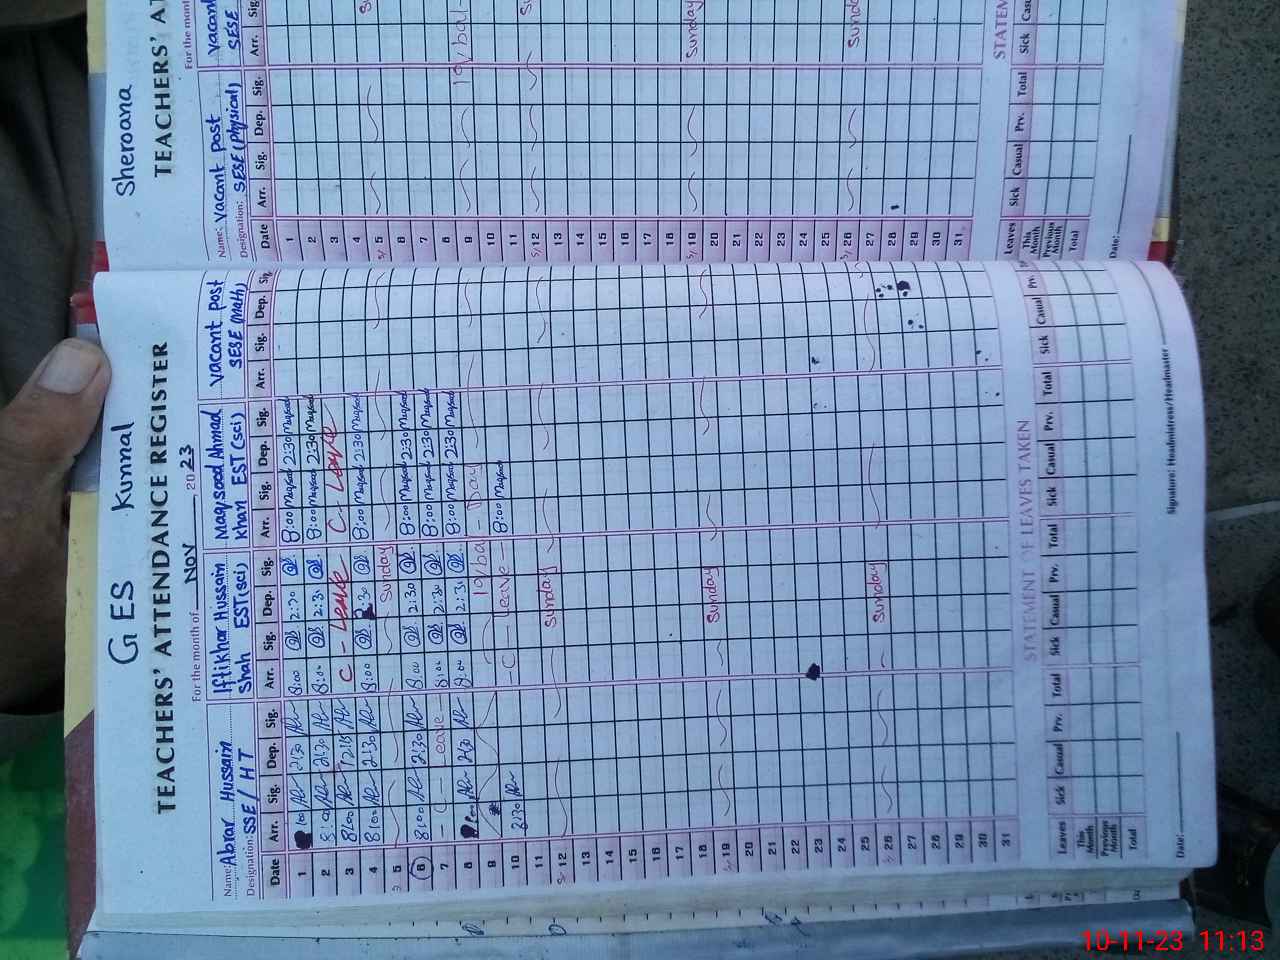 GES Kunnal
TEACHERS' ATTENDANCE REGISTER
For the month of Nov 2023
Name: Abrar Hussain Iftikhar Hussain Shah Maqsood Ahmad Khan Vacant Post
Designation: SSE / HT EST (sci) EST (sci) SESE (Math)
Date Arr. Sig. Dep. Sig. Arr. Sig. Dep. Sig. Arr. Sig. Dep. Sig. Arr. Sig. Dep. Sig.
1 2:30 8:00 8:00 Maqsood 2:30 Maqsood
2 2:30 8:00 2:30 8:00 Maqsood 2:30 Maqsood
3 8:00 12:15 C - Leave C - Leave
4 8:00 2:30 8:00 8:00 Maqsood 2:30 Maqsood
5 Sunday
6 8:00 2:30 8:00 2:30 8:00 Maqsood 2:30 Maqsood
7 C - Leave 8:00 2:30 8:00 Maqsood 2:30 Maqsood
8 2:30 8:00 2:30 8:00 Maqsood 2:30 Maqsood
9 Iqbal - Day
10 C - Leave - 8:00 Maqsood
11
12 Sunday
13
14
15
16
17
18
19 Sunday
20
21
22
23
24
25
26 Sunday
27
28
29
30
31
STATEMENT OF LEAVES TAKEN
Leaves Sick Casual Prv. Total Sick Casual Prv. Total Sick Casual Prv. Total Sick Casual Prv.
This Month
Previous Month
Total
Date: Signature: Headmistress/Headmaster
Sheroana
TEACHERS' AT
For the mont
Name: Vacant Post Vacant
Designation: SESE (Physical) SESE
Date Arr. Sig. Dep. Sig. Arr. Sig.
1
2
3
4
5
6
7
8
9 Iqbal -
10
11
12
13
14
15
16
17
18
19 Sunday
20
21
22
23
24
25
26 Sunday
27
28
29
30
31
STATEM
Leaves Sick Casual Prv. Total Sick
This Month
Previous Month
Total
Date:
10-11-23 11:13